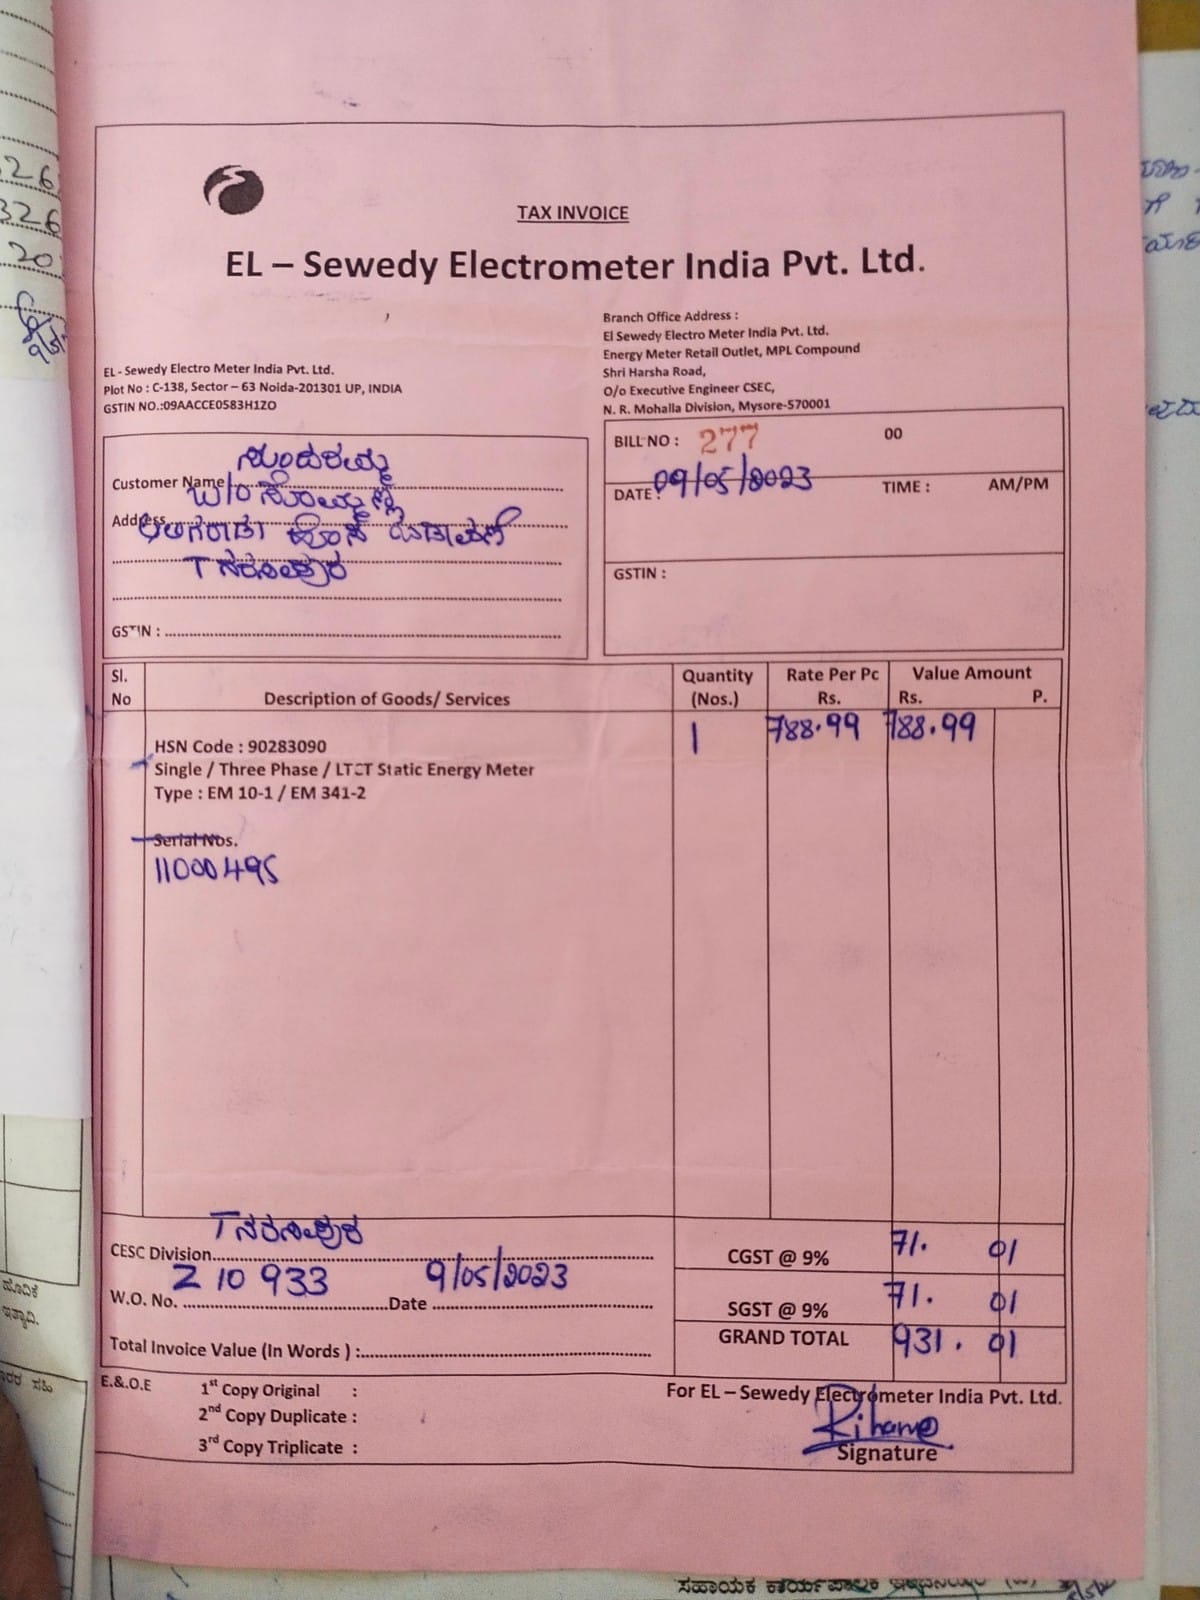 TAX INVOICE
EL – Sewedy Electrometer India Pvt. Ltd.
Branch Office Address :
El Sewedy Electro Meter India Pvt. Ltd.
Energy Meter Retail Outlet, MPL Compound
Shri Harsha Road,
O/o Executive Engineer CSEC,
N. R. Mohalla Division, Mysore-570001
EL - Sewedy Electro Meter India Pvt. Ltd.
Plot No : C-138, Sector – 63 Noida-201301 UP, INDIA
GSTIN NO.:09AACCE0583H1ZO
Customer Name
W/o
Address
T ನರಸೀಪುರ
GSTIN :
BILL NO : 277 00
DATE : 09/05/2023 TIME : AM/PM
GSTIN :
Sl. No Description of Goods/ Services Quantity (Nos.) Rate Per Pc Rs. Value Amount Rs. P.
1 788.99 788.99
HSN Code : 90283090
Single / Three Phase / LTCT Static Energy Meter
Type : EM 10-1 / EM 341-2
Serial Nos.
11000495
CESC Division T ನರಸೀಪುರ
W.O. No. 210933 Date 9/05/2023
Total Invoice Value (In Words ) :
CGST @ 9% 71. 01
SGST @ 9% 71. 01
GRAND TOTAL 931. 01
E.&.O.E 1st Copy Original :
2nd Copy Duplicate :
3rd Copy Triplicate :
For EL – Sewedy Electrometer India Pvt. Ltd.
Signature
326
20
ಸಹಾಯಕ ಕಾರ್ಯಪಾಲಕ